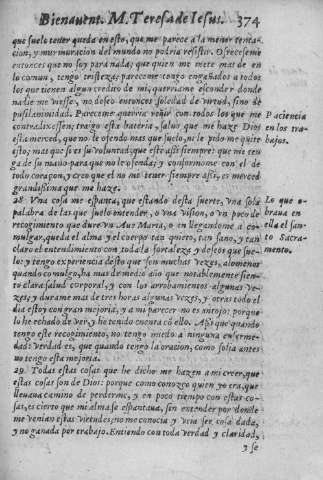 Bienauent. M. Teresa de Iesus. 374
que suele tener queda en esto, que me parece a la menor tentacion,
y murmuracion del mundo no podria resistir. Ofreceseme
entonces que no soy para nada; que quien me mete mas de en
lo comun, tengo tristeza; pareceme tengo engañados a todos
los que tienen algun credito de mi, querriame esconder donde
nadie me viesse, no desseo entonces soledad de virtud, sino de
pusilanimidad. Pareceme querria reñir con todos los que me
contradixessen; traigo esta bateria, saluo que me haze Dios
esta merced, que no le ofendo mas que suelo, ni le pido me quite
esto; mas que si es su voluntad, que esté assi siempre; que me tenga
de su mano para que no le ofenda; y conformome con él de
todo coraçon, y creo que el no me tener siempre assi, es merced
grandissima que me haze.
Paciencia
en los trabajos.
28. Vna cosa me espanta, que estando desta suerte, vna sola
palabra de las que suelo entender, o vna vision, o vn poco de
recogimiento que dure vn Aue Maria, o en llegandome a comulgar,
queda el alma y el cuerpo tan quieto, tan sano, y tan
claro el entendimiento con toda la fortaleza y deseos que suelo:
y tengo experiencia desto que son muchas vezes, alomenos
quando comulgo, ha mas de medio año que notablemente siento
clara salud corporal, y con los arrobamientos algunas vezes,
y durame mas de tres horas algunas vezes, y otras todo el
dia estoy con gran mejoria, y a mi parecer no es antojo; porque
lo he echado de ver, y he tenido cuenta cō ello. Assi que quando
tengo este recogimiento, no tengo miedo a ninguna enfermedad:
verdad es, que quando tengo la oracion, como solia antes
no tengo esta mejoria.
Lo que obraua
en
ella el santo
Sacramento.
29. Todas estas cosas que he dicho me hazen a mi creer, que
estas cosas son de Dios: porque como conozco quien yo era, que
lleuaua camino de perderme, y en poco tiempo con estas cosas,
es cierto que mi alma se espantaua, sin entender por donde
me venian estas virtudes; no me conocia y via ser cosa dada,
y no ganada por trabajo. Entiendo con toda verdad y claridad,
y se